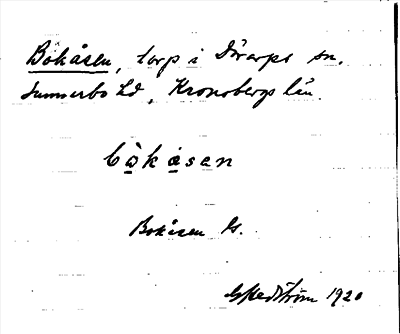 Bökåsen, torp i Dörarps sn.
Sunnerbo hd, Kronobergs län.
bökåsen
Bokåsen G.
GHedström 1920